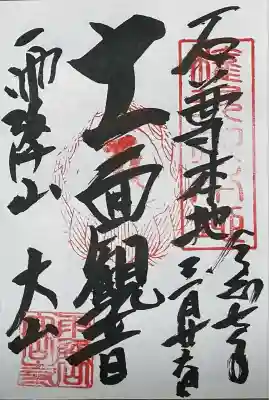 石尊本地
令和七年
三月廿六日
十一面観音
雨降山 大山